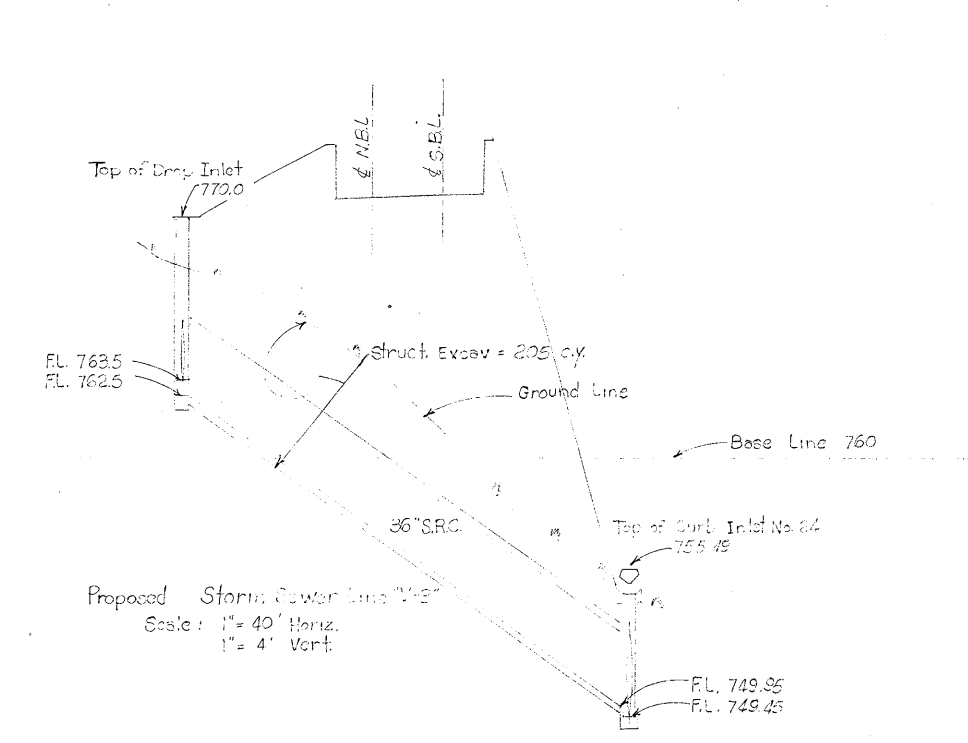 ℄ N.B.L.
℄ S.B.L.
Top of Drop Inlet
770.0
F.L. 763.5
F.L. 762.5
Struct. Excav = 205 c.y.
Ground Line
Base Line 760
36" S.R.C.
Top of Curb Inlet No. 24
755.49
Proposed Storm Sewer Line "V-3"
Scale: 1" = 40' Horiz.
1" = 4' Vert.
F.L. 749.95
F.L. 749.45